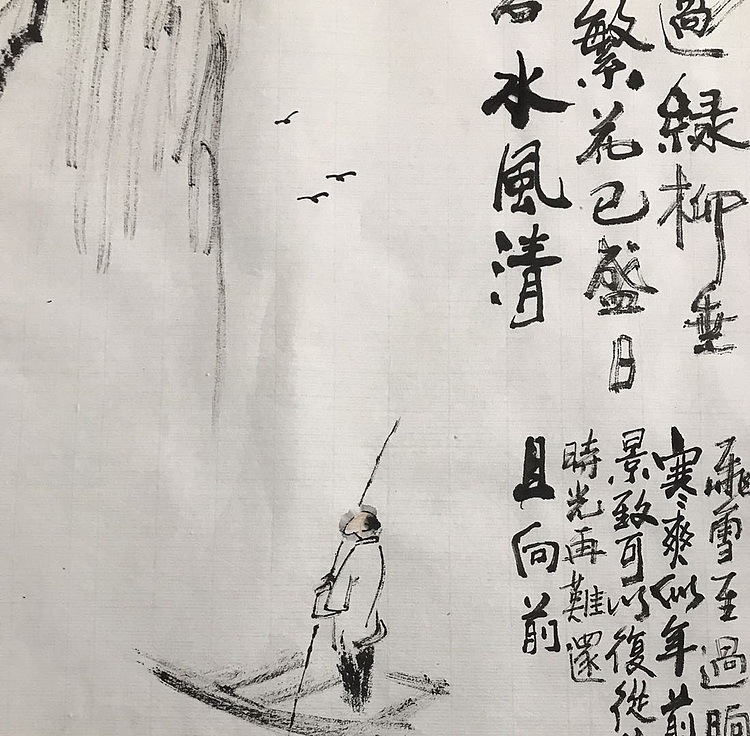 過綠柳垂
繁花已盛日
水風清
雪至過晌
寒爽似年前
景致可以復從
時光再難還
且向前